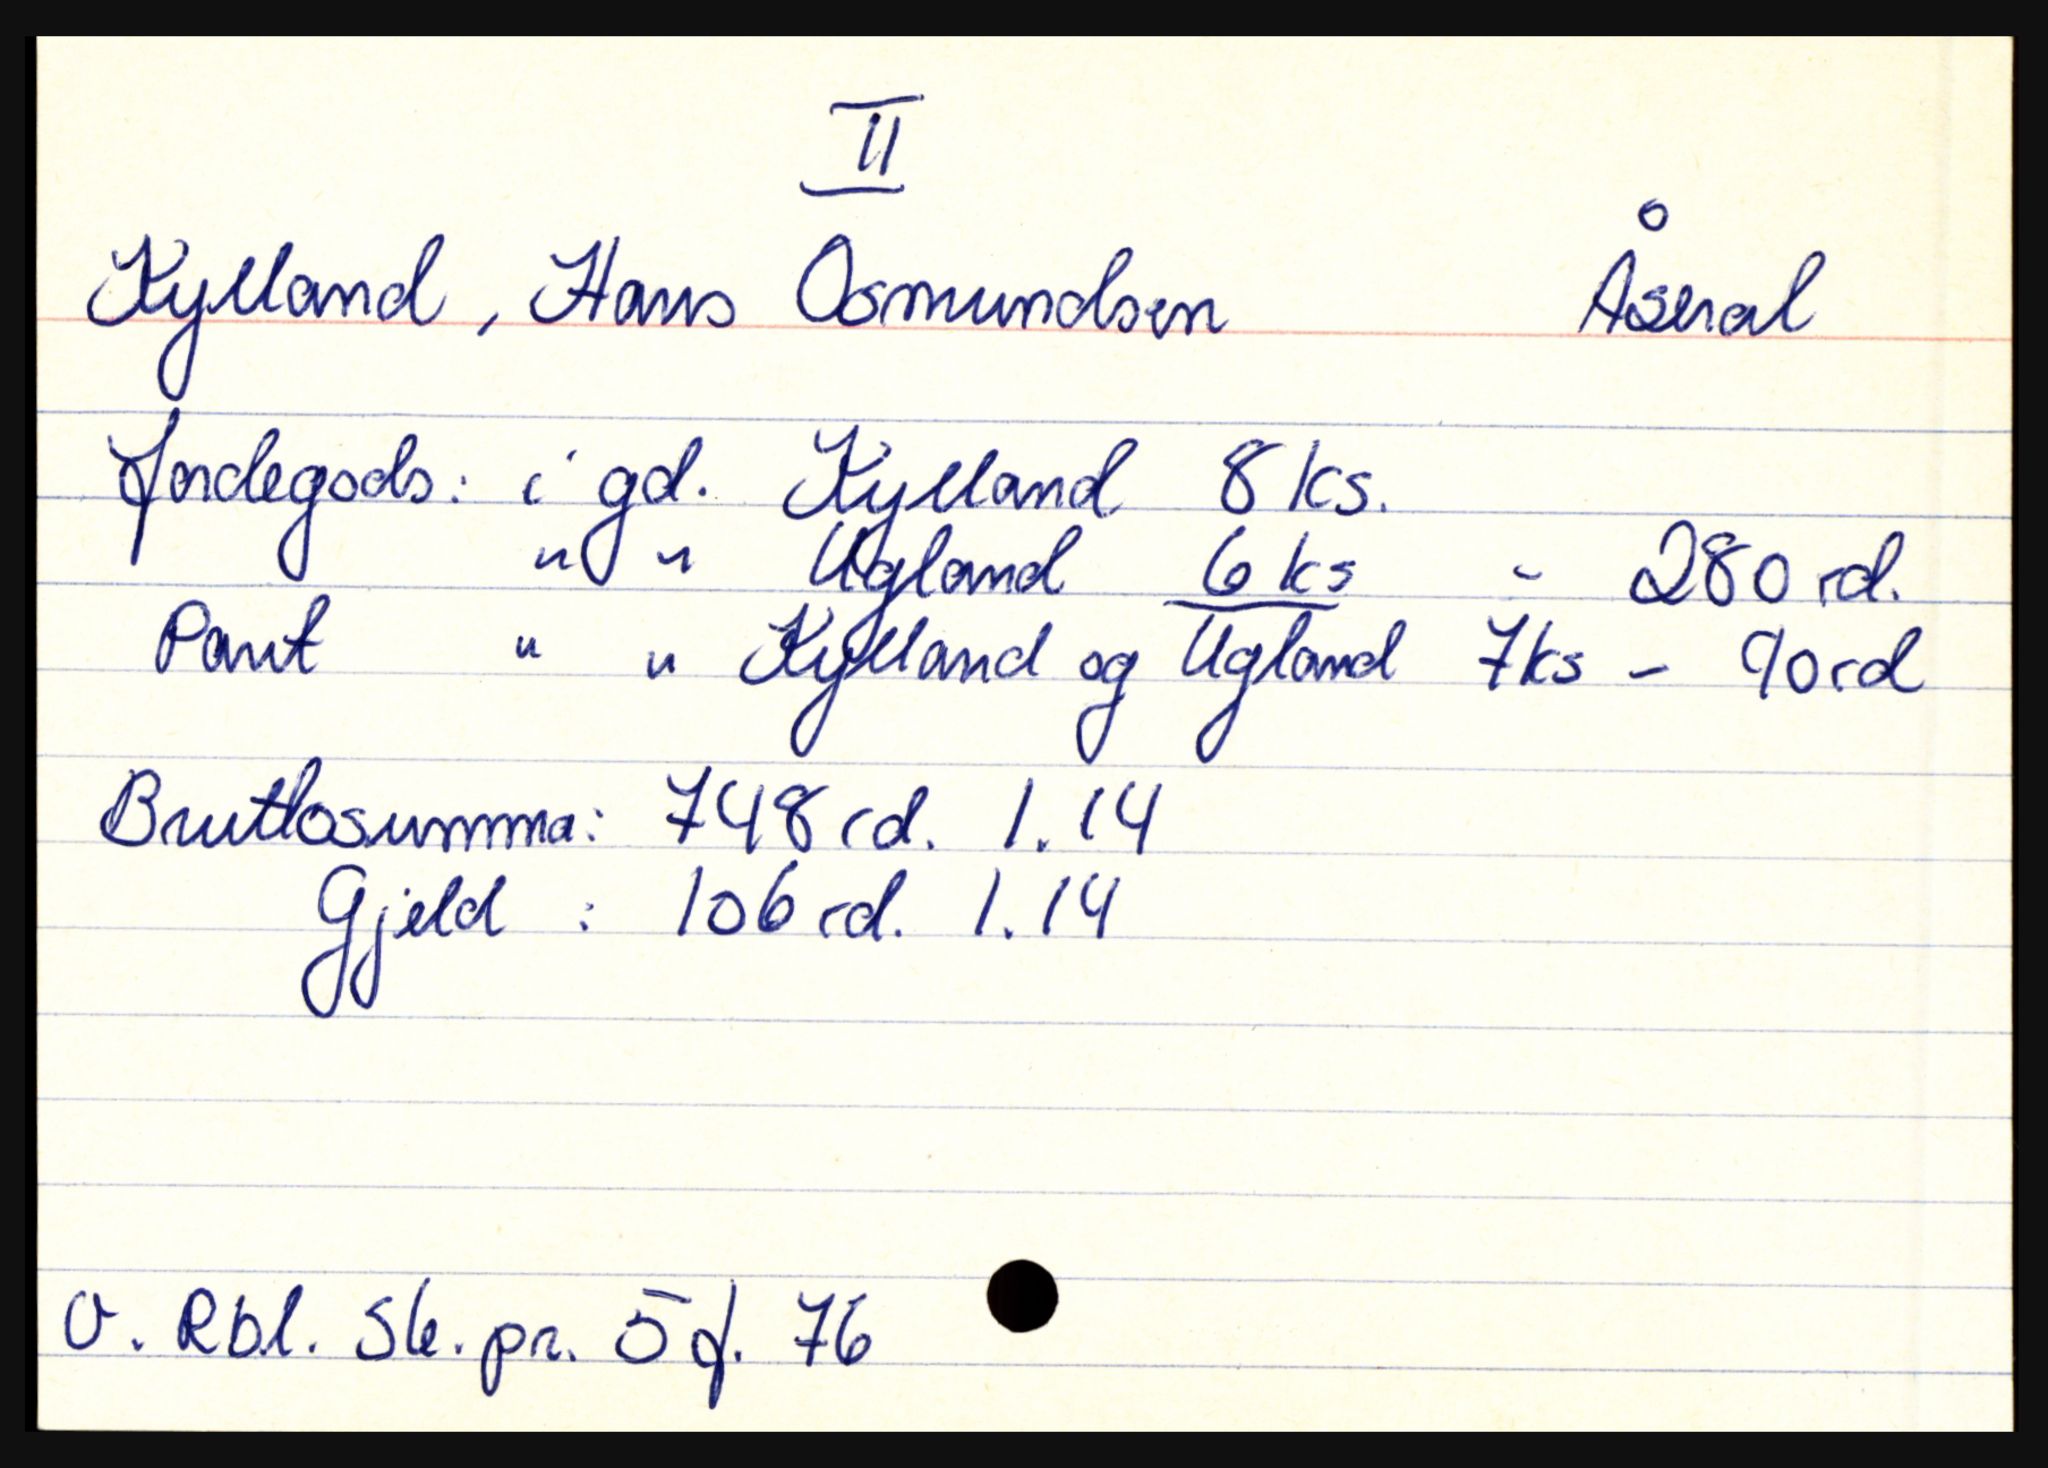 II
Kylland, Hans Osmundsen Åseral
Jordegods: i gd. Kylland 8 ks.
" " Ugland 6 ks - 280 rd.
Pant " " Kylland og Ugland 7 ks - 90 rd
Bruttosumma: 748 rd. 1.14
Gjeld : 106 rd. 1.14
V. Rbl. Sk. pr. 5 f. 76